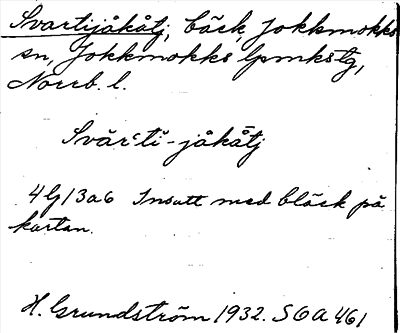 Svartijåkåtj, bäck, Jokkmokks
sn, Jokkmokks lpmkstg,
Norrb. l.
Svàr̄ˈtī-jåkåtj
4G13a6 Insatt med bläck på
kartan.
H. Grundström 1932. SOA 461